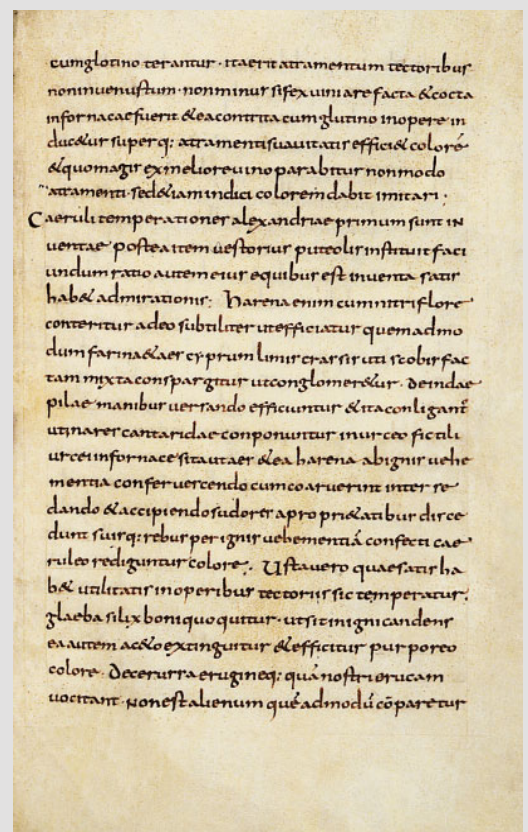 cum glotino terantur · ita erit atramentum tectoribus
non inuenustum · non minus si fex uini arefacta & cocta
in fornacae fuerit & ea contrita cum glutino in opere in
duc&ur super q: atramenti suauitatis effici& colorē
& quo magis ex meliore uino parabitur non modo
atramenti · sed & iam indici colorem dabit imitari ·
Caeruli temperationes alexandriae primum sunt in
uentae postea item uestorius puteolis instituit faci
undum ratio autem eius e quibus est inuenta satis
hab& admirationis : harena enim cum nitri flore
conteritur adeo subtiliter ut efficiatur quem ad mo
dum farina & aes cyprum limis crassis uti scobis fac
tam mixta conspargitur ut conglomer&ur · deindae
pilae manibus uersando efficiuntur & ita conligant̄
ut inarescant aridae conponuntur in urceo fictili
urcei in fornace sita ut aes & ea harena ab ignis uehe
mentia conferuescendo cum coaruerint inter se
dando & accipiendo sudores a propri&atibus disce
dunt suisq: rebus per ignis uehementiā confecti cae
ruleo rediguntur colore ; Usta uero quae satis ha
b& utilitatis in operibus tectoriis sic temperatur ;
glaeba silix boni quo quitur · ut sit in igni candens
ea autem ac&o extinguitur & efficitur purporeo
colore · de cerussa erugineq: quā nostri erucam
uocitant · non est alienum quē ad modū cōparetur